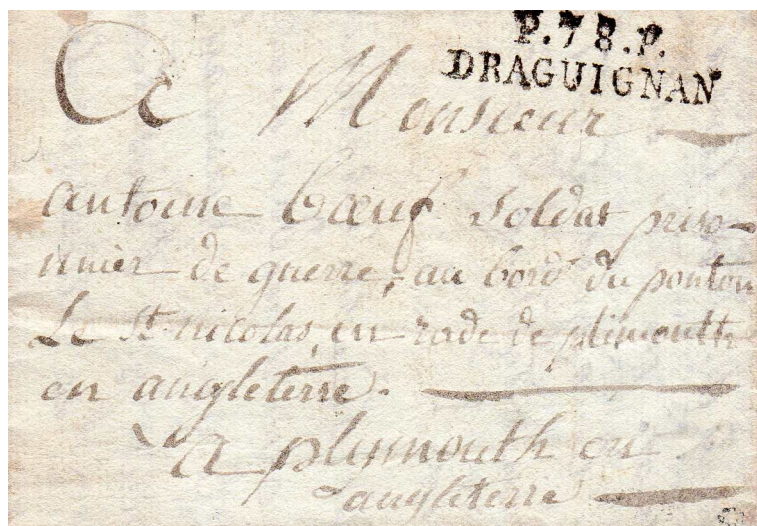 P.78.P.
DRAGUIGNAN
A Monsieur
antoine bœuf soldat priso-
nnier de guerre, au bord du ponton
Le St. nicolas, en rade de plimouth
en angleterre.
A plymouth en
angleterre